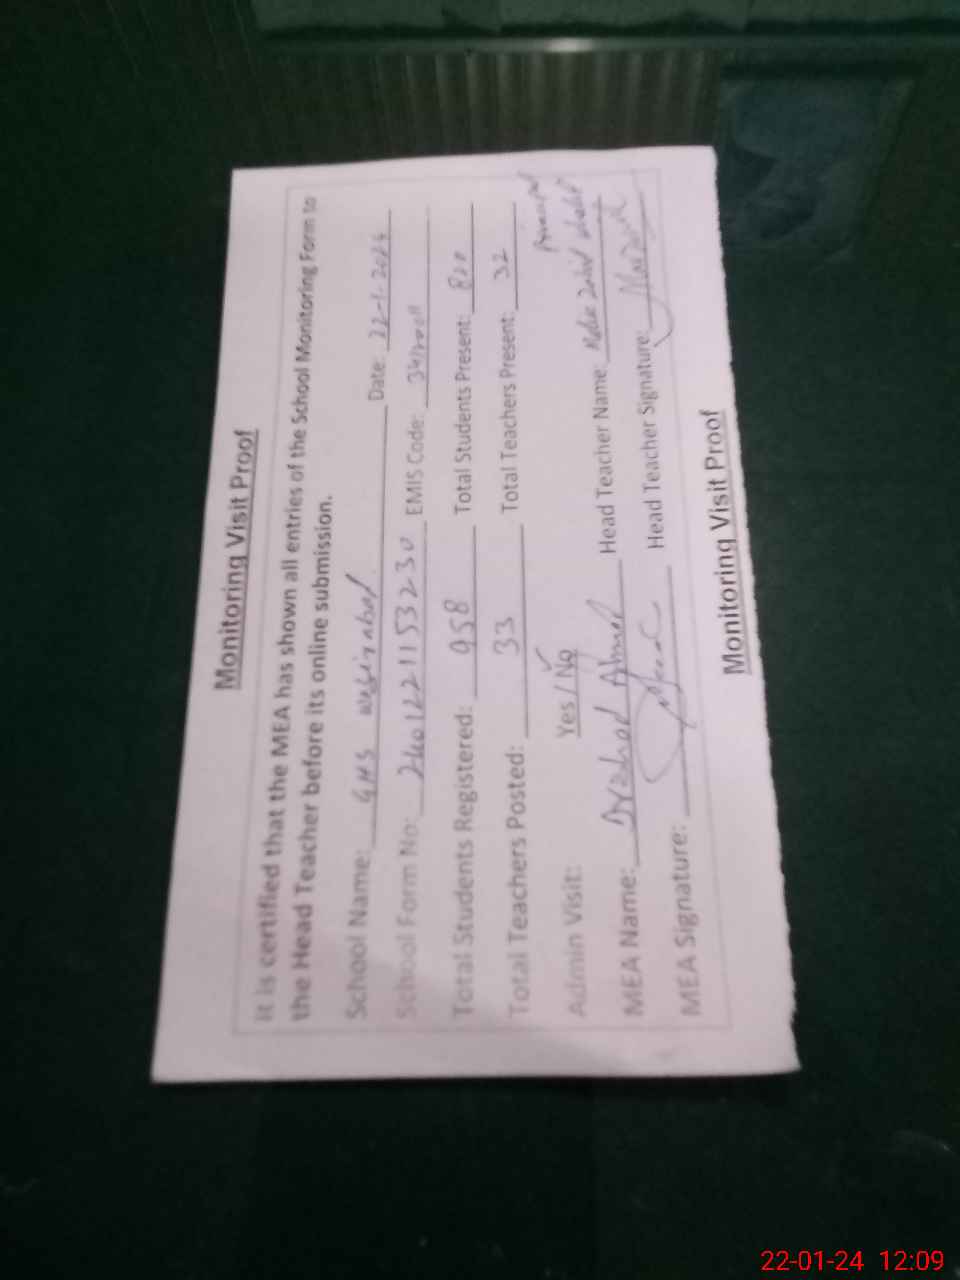 Monitoring Visit Proof
It is certified that the MEA has shown all entries of the School Monitoring Form to
the Head Teacher before its online submission.
School Name: GHS wazirabad Date: 22-1-2024
School Form No: 2401221153230 EMIS Code:
Total Students Registered: 958 Total Students Present: 820
Total Teachers Posted: 33 Total Teachers Present: 32
Admin Visit: Yes / No ✓ Principal
MEA Name: Ahmed Head Teacher Name:
MEA Signature: Head Teacher Signature:
Monitoring Visit Proof
22-01-24 12:09